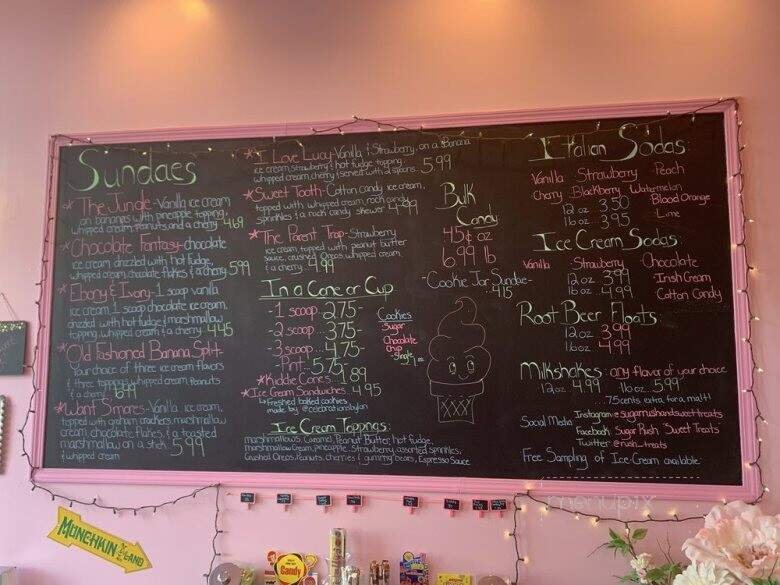 Sundaes
*The Jungle - Vanilla ice cream
on bananas with pineapple topping,
whipped cream, peanuts, and a cherry 4.69
*Chocolate Fantasy - chocolate
ice cream drizzled with hot fudge,
whipped cream, chocolate flakes, & a cherry 5.99
*Ebony & Ivory - 1 scoop vanilla
ice cream, 1 scoop chocolate ice cream,
drizzled with hot fudge & marshmallow
topping, whipped cream, & a cherry 4.45
*Old Fashioned Banana Split -
Your choice of three ice cream flavors
& three toppings, whipped cream, Peanuts
& cherry
*Want Smores - Vanilla ice cream,
topped with graham crackers, marshmallow
cream, chocolate flakes, & a toasted
marshmallow on a stick 5.99
& whipped cream
*I Love Lucy - Vanilla & Strawberry on a Banana
ice cream, strawberry & hot fudge topping,
whipped cream, cherry & served with 2 spoons 5.99
*Sweet Tooth - Cotton Candy ice cream,
topped with whipped cream, rock candy
sprinkles & a rock candy skewer 4.99
*The Parent Trap - Strawberry
ice cream, topped with peanut butter
sauce, crushed Oreos, whipped cream,
& a cherry 4.99
In a Cone or Cup
-1 scoop 2.75-
-2 scoop 3.75-
-3 scoop 4.75-
-Pint- 5.75-
*Kiddie Cones 1.89
*Ice Cream Sandwiches 4.95
↳ Freshed baked cookies
made by @celebrationsbylan
Cookies
Sugar
Chocolate
Chip
-Single-
Ice Cream Toppings:
marshmallows, Caramel, Peanut Butter, hot fudge,
marshmallow Cream, pineapple, Strawberry, assorted sprinkles,
Crushed Oreos, Peanuts, cherries, gummy bears, Espresso Sauce
Bulk
Candy
45¢ oz
6.99 lb
-Cookie Jar Sundae-
4.15
Italian Sodas
Vanilla Strawberry Peach
Cherry Blackberry Watermelon
Blood Orange
Lime
12 oz 3.50
16 oz 3.95
Ice Cream Sodas
Vanilla Strawberry Chocolate
Irish Cream
Cotton Candy
12 oz 3.99
16 oz 4.99
Root Beer Floats
12 oz 3.99
16 oz 4.99
Milkshakes: any flavor of your choice
12 oz 4.99 16 oz 5.99
...75 cents extra for a malt!
Social Media Instagram @sugarrushandsweettreats
Facebook Sugar Rush Sweet Treats
Twitter @rush_treats
Free Sampling of Ice Cream available
menupix
MUNCHKIN LAND
Candy